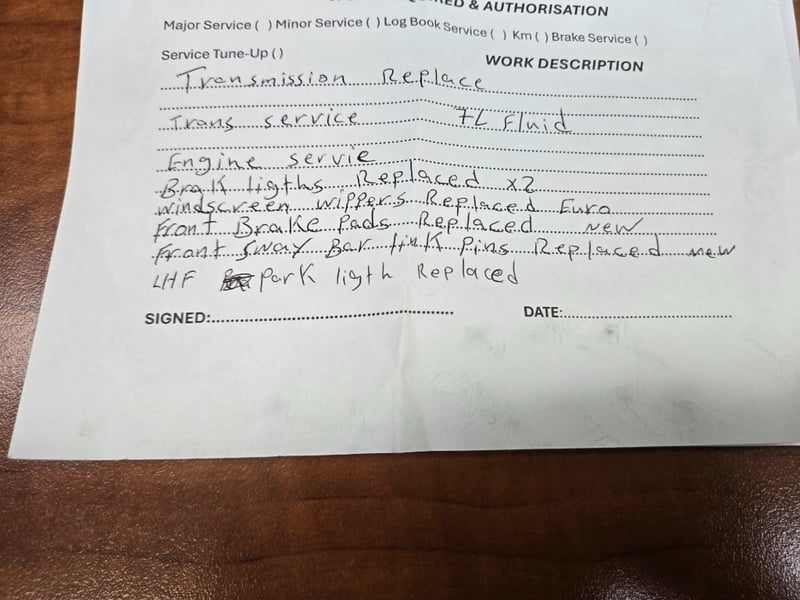 ED & AUTHORISATION
Major Service ( ) Minor Service ( ) Log Book Service ( ) Km ( ) Brake Service ( )
Service Tune-Up ( )
WORK DESCRIPTION
Transmission Replace
Trans service 7L Fluid
Engine servie
Brak ligths Replaced x2
windscreen wippers Replaced Euro
Front Brake Pads Replaced new
Front sway Bar link Pins Replaced new
LHF Park ligth Replaced
SIGNED: DATE: